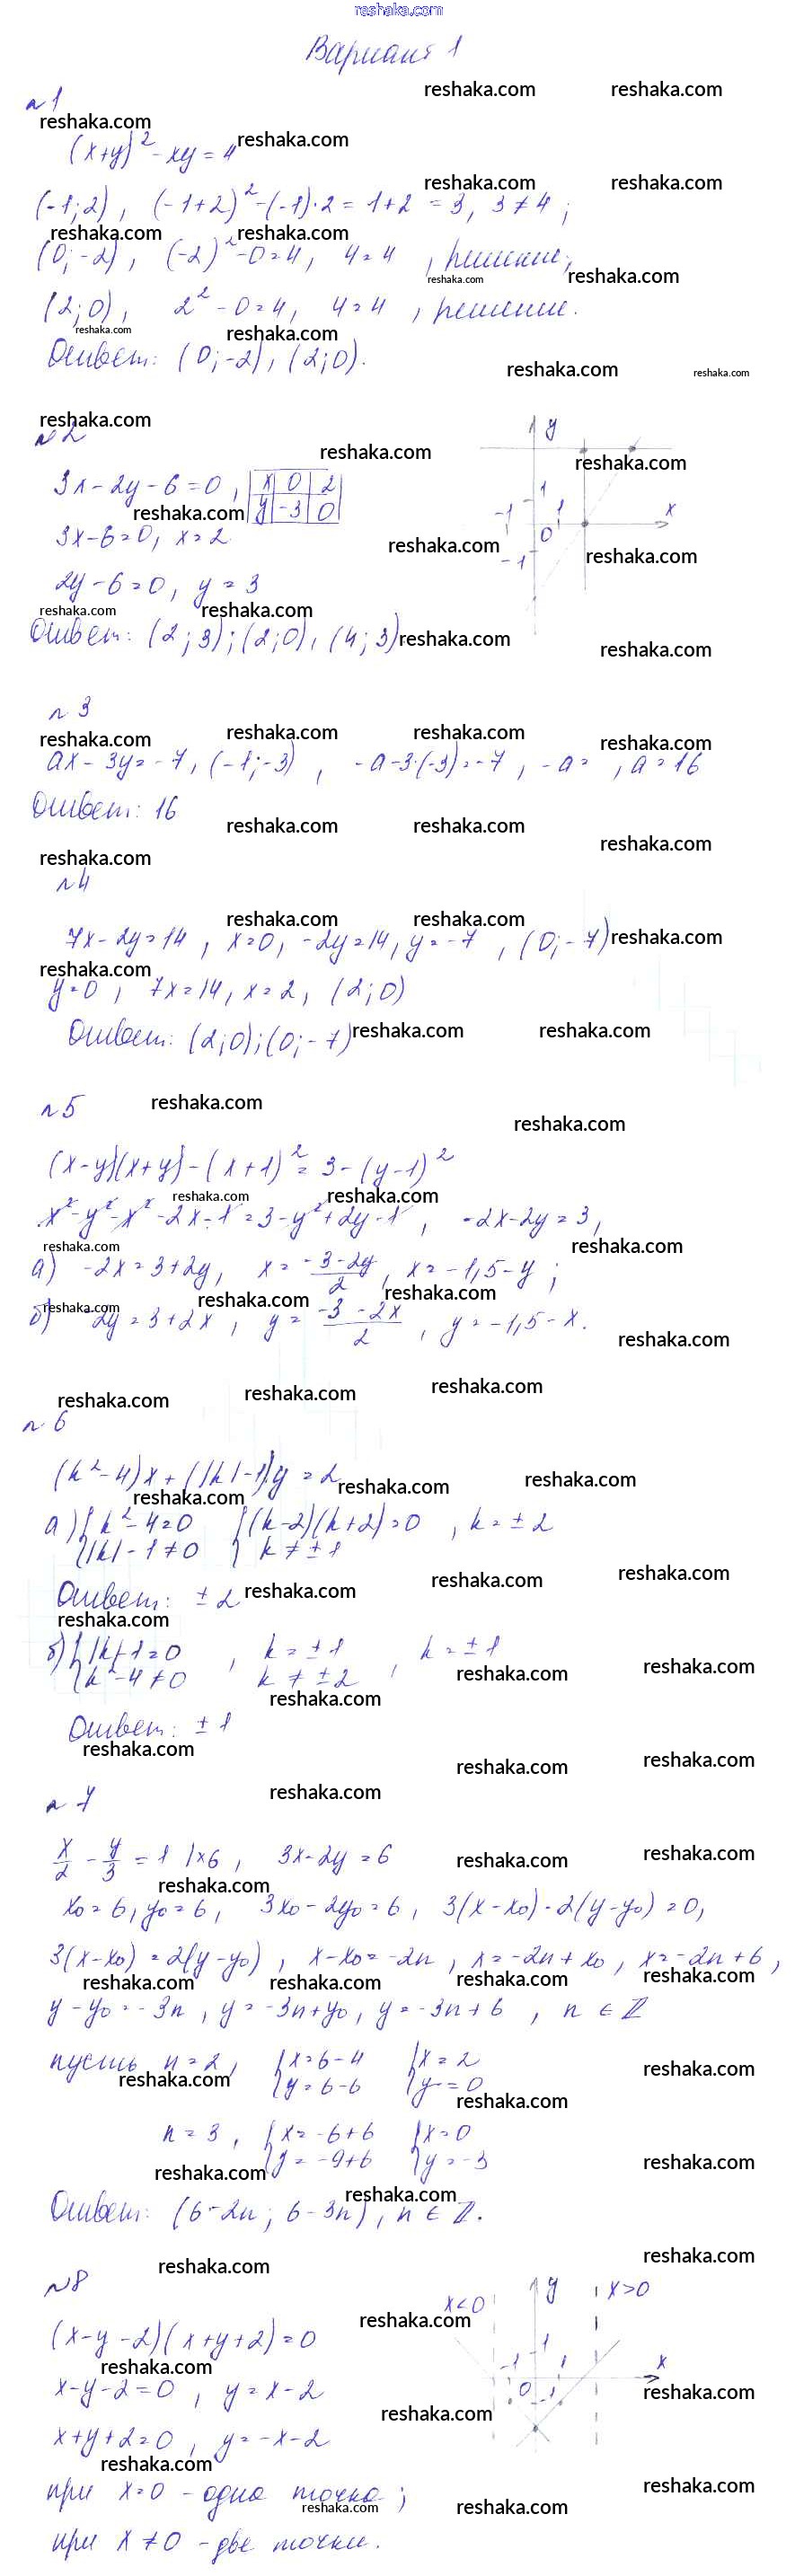 reshaka.com
Вариант 1
№1
(x+y)² - xy = 4
(-1; 2), (-1+2)² - (-1)·2 = 1+2 = 3, 3 ≠ 4;
(0; -2), (-2)² - 0 = 4, 4 = 4, решение;
(2; 0), 2² - 0 = 4, 4 = 4, решение.
Ответ: (0; -2), (2; 0).
№2
3x - 2y - 6 = 0, x 0 2
y -3 0
3x - 6 = 0, x = 2
2y - 6 = 0, y = 3
Ответ: (2; 3); (2; 0), (4; 3)
y
1
-1 0 1 x
-1
№3
ax - 3y = -7, (-1; -3), -a - 3·(-3) = -7, -a = , a = 16
Ответ: 16
№4
7x - 2y = 14, x = 0, -2y = 14, y = -7, (0; -7)
y = 0, 7x = 14, x = 2, (2; 0)
Ответ: (2; 0); (0; -7)
№5
(x-y)(x+y) - (x+1)² = 3 - (y-1)²
x² - y² - x² - 2x - 1 = 3 - y² + 2y - 1, -2x - 2y = 3,
а) -2x = 3 + 2y, x = (-3-2y)/2, x = -1,5 - y;
б) -2y = 3 + 2x, y = (-3-2x)/2, y = -1,5 - x.
№6
(k² - 4)x + (|k| - 1)y = 2
а) { k² - 4 = 0 { (k-2)(k+2) = 0, k = ±2
{ |k| - 1 ≠ 0 { k ≠ ±1
Ответ: ±2
б) { |k| - 1 = 0, k = ±1, k = ±1
{ k² - 4 ≠ 0 k ≠ ±2
Ответ: ±1
№7
x/2 - y/3 = 1 |×6, 3x - 2y = 6
x₀ = 6, y₀ = 6, 3x₀ - 2y₀ = 6, 3(x - x₀) - 2(y - y₀) = 0,
3(x - x₀) = 2(y - y₀), x - x₀ = -2n, x = -2n + x₀, x = -2n + 6,
y - y₀ = -3n, y = -3n + y₀, y = -3n + 6, n ∈ Z
пусть n = 2, { x = 6 - 4 { x = 2
{ y = 6 - 6 { y = 0
n = 3, { x = -6 + 6 { x = 0
{ y = -9 + 6 { y = -3
Ответ: (6 - 2n; 6 - 3n), n ∈ Z.
№8
(x - y - 2)(x + y + 2) = 0
x - y - 2 = 0, y = x - 2
x + y + 2 = 0, y = -x - 2
x < 0 y x > 0
1
-1 0 1 x
-1
при x = 0 - одна точка;
при x ≠ 0 - две точки.